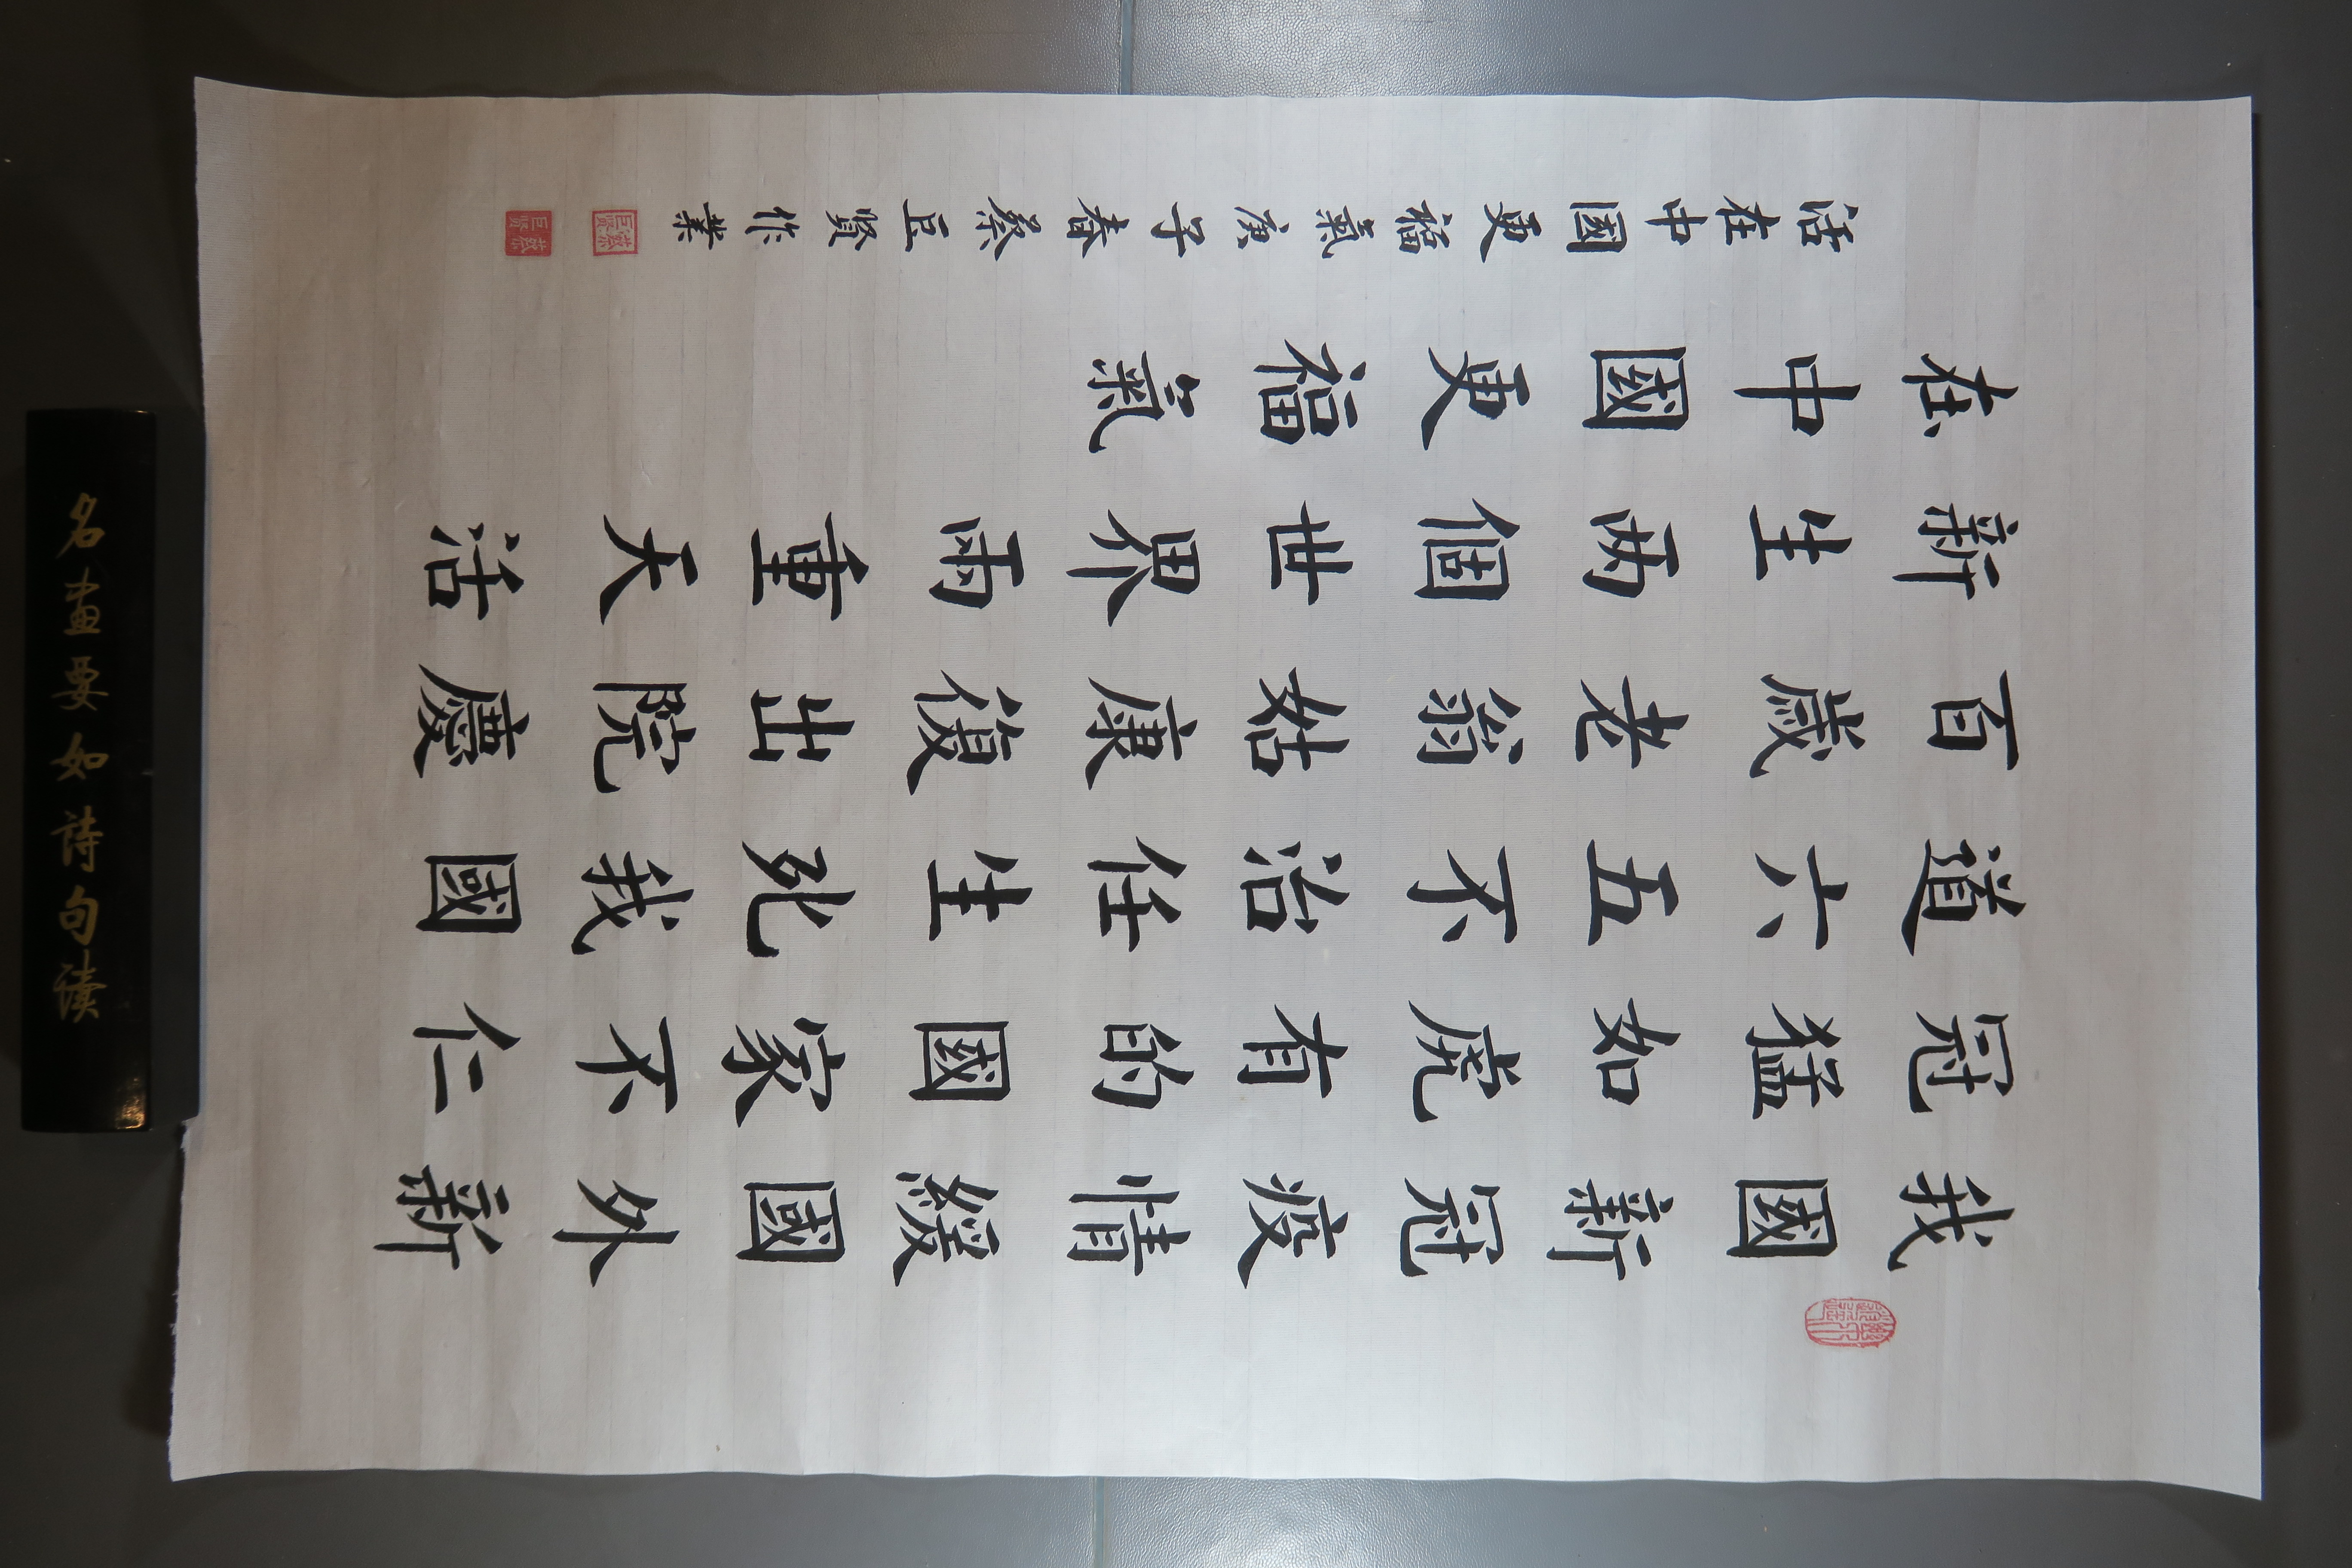 我國新冠疫情緩國外新
冠猛如虎有的國家不仁
道六五不治任生死我國
百歲老翁姑康復出院慶
新生兩個世界雨重天活
在中國更福氣
活在中國更福氣庚子春蔡巨賢作業
蔡巨賢
蔡巨賢
名畫要如詩句讀